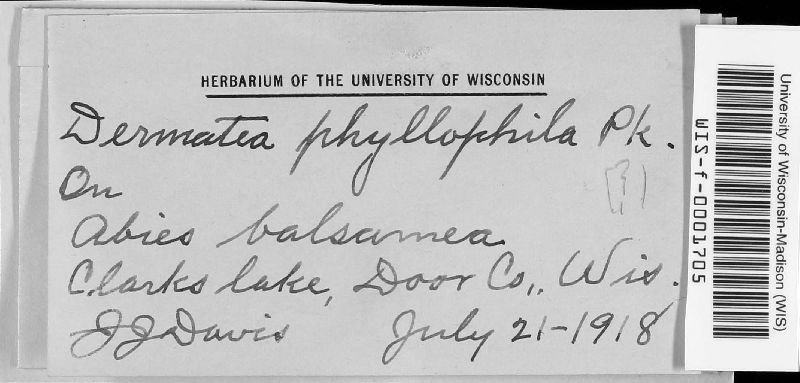 HERBARIUM OF THE UNIVERSITY OF WISCONSIN
Dermatea phyllophila Pk.
[?]
On
Abies balsamea
Clarks lake, Door Co., Wis.
JJDavis July 21-1918
University of Wisconsin-Madison (WIS)
WIS-f-0001705